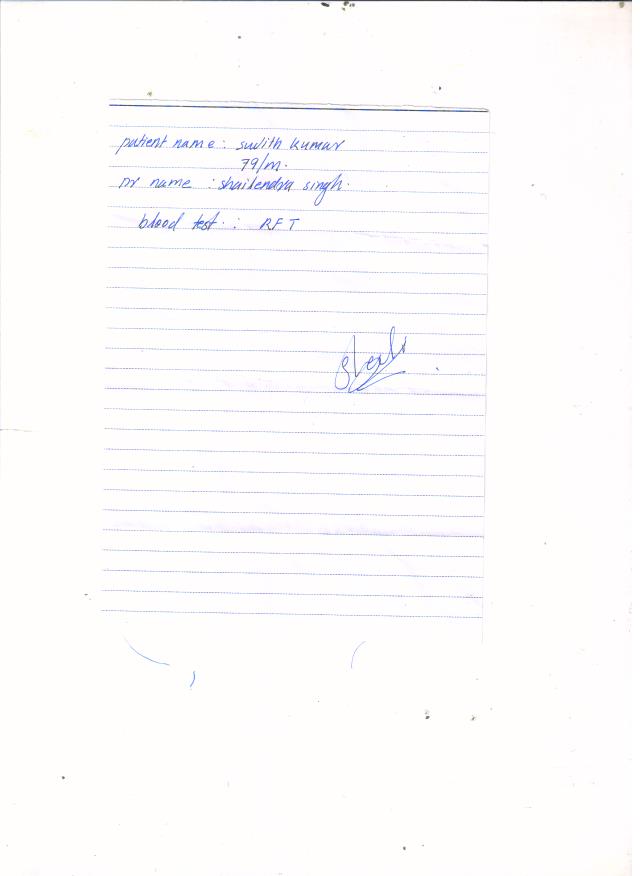 patient name : sulith kumar
79/m.
Dr name : shailendra singh.
blood test : RFT